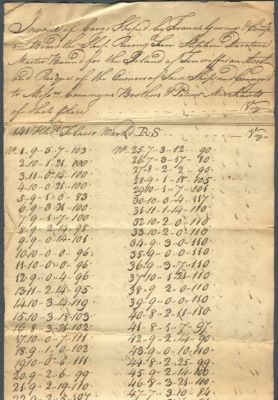 Invoice of Cargo Shiped by Francis Gurney &
on Board the Ship Rising Sun Stephen Decatur
Master Bound for the Island of on Acct
and Risque of the Owners of said Ship and consigned
to Messrs Brother & Merchants
of that place
141 Hhds Tobacco Markd
No 1.. 9.. 3.. 7.. 103
2.. 10.. 1.. 21.. 100
3.. 11.. 0.. 14.. 100
4.. 10.. 0.. 21.. 100
5.. 9.. 1.. 0.. 83
6.. 9.. 3.. 21.. 100
7.. 9.. 1.. 7.. 100
8.. 9.. 2.. 14.. 98
9.. 9.. 0.. 14.. 101
10.. 10.. 0.. 0.. 96
11.. 10.. 0.. 0.. 96
12.. 9.. 0.. 4.. 96
13.. 11.. 2.. 14.. 95
14.. 10.. 3.. 14.. 119
15.. 10.. 3.. 18.. 103
16.. 8.. 3.. 21.. 102
17.. 10.. 0.. 7.. 111
18.. 9.. 1.. 0.. 102
19.. 10.. 0.. 6.. 111
20.. 9.. 2.. 6.. 99
21.. 9.. 2.. 19.. 110
No 25.. 7.. 3.. 12.. 90
26.. 7.. 3.. 17.. 80
27.. 8.. 2.. 2.. 90
28.. 9.. 1.. 18.. 105
29.. 10.. 1.. 7.. 101
30.. 10.. 0.. 4.. 117
31.. 11.. 1.. 14.. 110
32.. 10.. 2.. 0.. 110
33.. 10.. 2.. 0.. 110
34.. 9.. 3.. 0.. 110
35.. 9.. 0.. 0.. 110
36.. 9.. 3.. 7.. 110
37.. 10.. 1.. 21.. 110
38.. 9.. 2.. 0.. 110
39.. 9.. 0.. 0.. 110
40.. 8.. 2.. 11.. 110
41.. 8.. 1.. 7.. 97
42.. 9.. 2.. 14.. 90
43.. 9.. 0.. 10.. 110
44.. 8.. 2.. 25.. 99
45.. 9.. 2.. 14.. 100
46.. 8.. 3.. 21.. 100
47.. 7.. 3.. 10.. 84